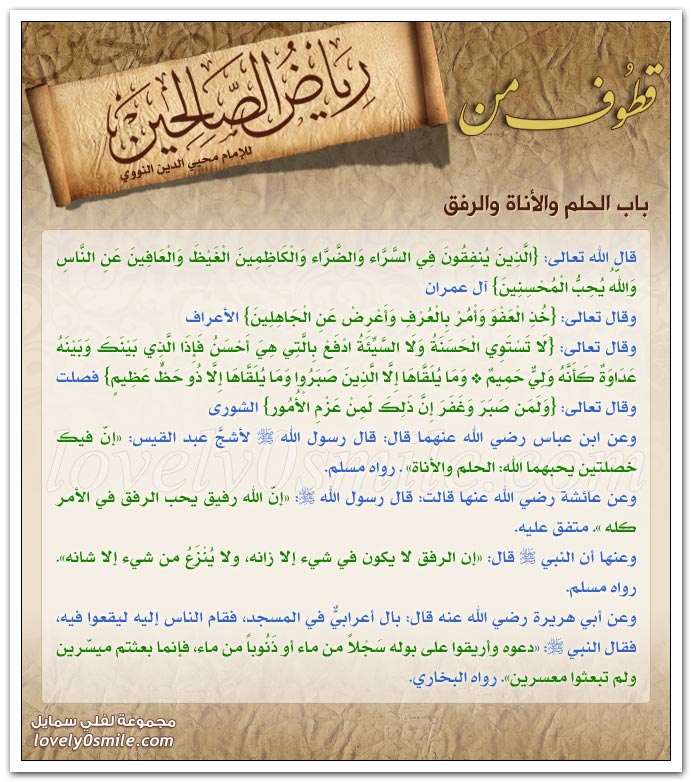 قطوف من
رياض الصالحين
للإمام محيي الدين النووي
باب الحلم والأناة والرفق
قال الله تعالى: {الَّذِينَ يُنفِقُونَ فِي السَّرَّاء وَالضَّرَّاء وَالْكَاظِمِينَ الْغَيْظَ وَالْعَافِينَ عَنِ النَّاسِ
وَاللّهُ يُحِبُّ الْمُحْسِنِينَ} آل عمران
وقال تعالى: {خُذِ الْعَفْوَ وَأْمُرْ بِالْعُرْفِ وَأَعْرِضْ عَنِ الْجَاهِلِينَ} الأعراف
وقال تعالى: {لَا تَسْتَوِي الْحَسَنَةُ وَلَا السَّيِّئَةُ ادْفَعْ بِالَّتِي هِيَ أَحْسَنُ فَإِذَا الَّذِي بَيْنَكَ وَبَيْنَهُ
عَدَاوَةٌ كَأَنَّهُ وَلِيٌّ حَمِيمٌ * وَمَا يُلَقَّاهَا إِلَّا الَّذِينَ صَبَرُوا وَمَا يُلَقَّاهَا إِلَّا ذُو حَظٍّ عَظِيمٍ} فصلت
وقال تعالى: {وَلَمَن صَبَرَ وَغَفَرَ إِنَّ ذَلِكَ لَمِنْ عَزْمِ الْأُمُورِ} الشورى
وعن ابن عباس رضي الله عنهما قال: قال رسول الله ﷺ لأشجَّ عبد القيس: «إنّ فيك
خصلتين يحبهما الله: الحلم والأناة» . رواه مسلم.
وعن عائشة رضي الله عنها قالت: قال رسول الله ﷺ: «إنّ الله رفيق يحب الرفق في الأمر
كله ». متفق عليه.
وعنها أن النبي ﷺ قال: «إن الرفق لا يكون في شيء إلا زانه، ولا يُنْزَعُ من شيء إلا شانه».
رواه مسلم.
وعن أبي هريرة رضي الله عنه قال: بال أعرابيٌّ في المسجد، فقام الناس إليه ليقعوا فيه،
فقال النبي ﷺ: «دعوه وأريقوا على بوله سَجْلاً من ماء أو ذَنُوباً من ماء، فإنما بعثتم ميسّرين
ولم تبعثوا معسرين». رواه البخاري.
lovely0smile.com
مجموعة لفلي سمايل
lovely0smile.com